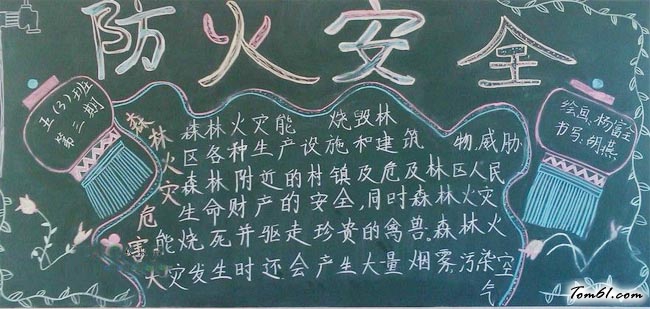 防火安全
五(3)班
第三期
绘画:杨富全
书写:胡燕
森林火灾危害大
森林火灾能 烧毁林
区各种生产设施和建筑 物,威胁
森林附近的村镇及危及林区人民
生命财产的安全,同时森林火灾
能烧死并驱走珍贵的禽兽。森林火
灾发生时还会产生大量烟雾,污染空
气
Tom61.com